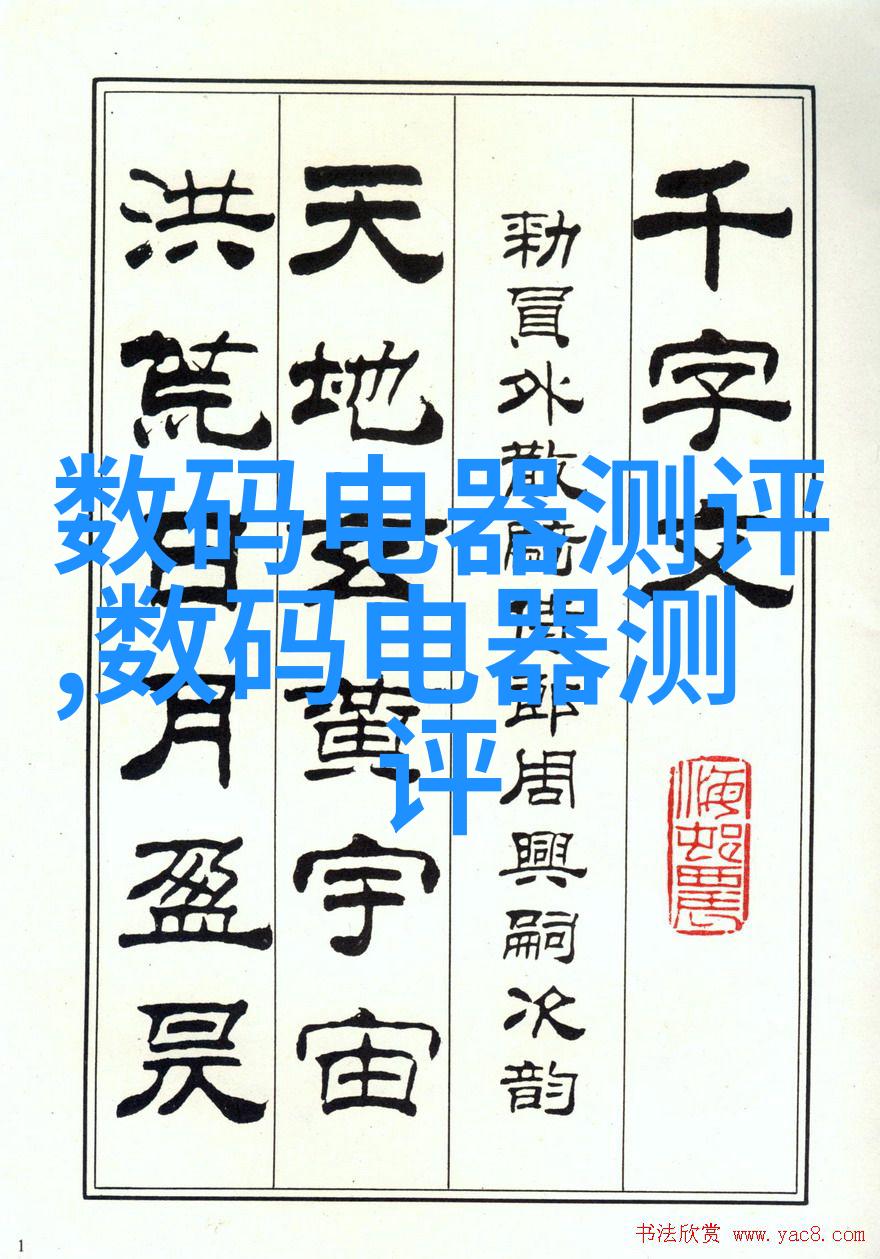 千字文
勑員外散騎侍郎周興嗣次韵
天地玄黃宇宙
洪荒日月盈昃
数码电器测评
,数码电器测
评
1
书法欣赏 www.yac8.com